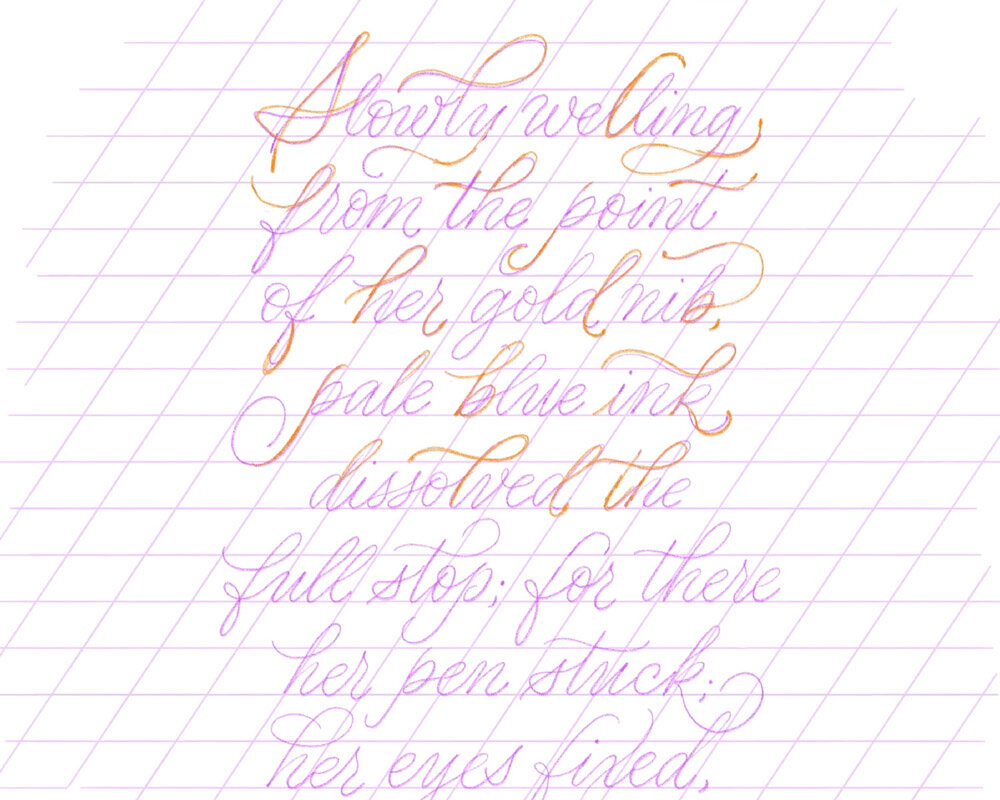 Slowly welling
from the point
of her gold nib,
pale blue ink
dissolved the
full stop; for there
her pen stuck;
her eyes fixed,